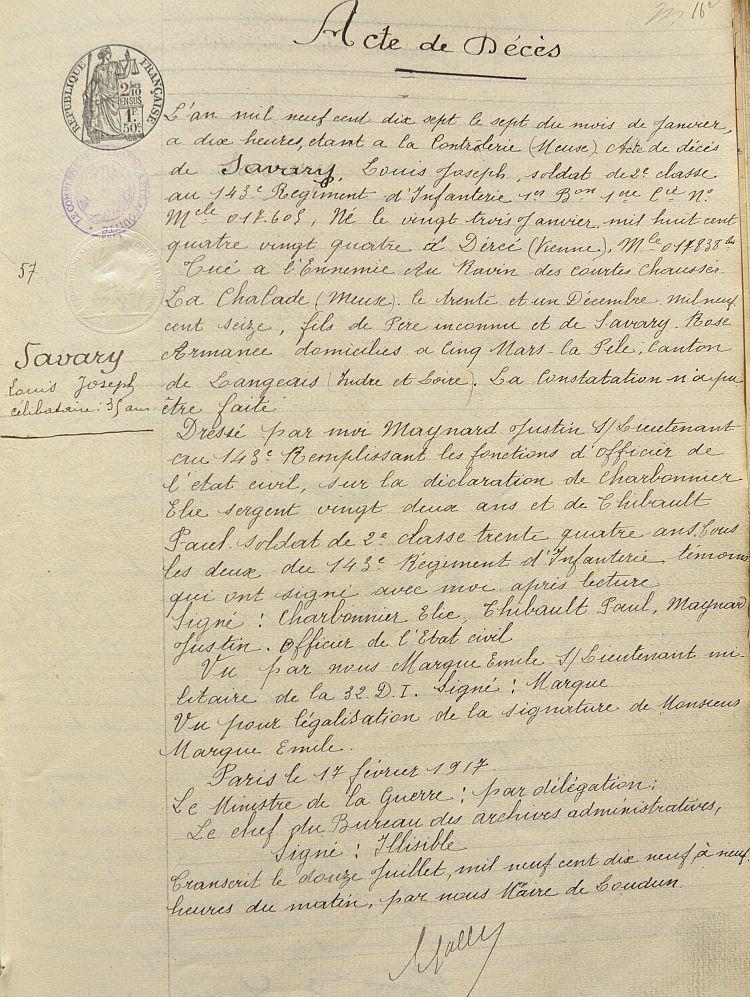 Acte de Décès
RÉPUBLIQUE FRANÇAISE
2/10 EN SUS
1F 50c
57
Savary
Louis Joseph
célibataire: 35 ans
L'an mil neuf cent dix sept le sept du mois de Janvier,
a dix heures, etant a la Controlerie (Meuse). Acte de décès
de Savary, Louis Joseph, soldat de 2e classe
au 143e Regiment d'Infanterie 1er Bon 1ere Cie No
Mcle 017.605, Né le vingt trois Janvier, mil huit cent
quatre vingt quatre à Dercé (Vienne), Mle 017838 bis
Tué a l'Ennemie Au Ravin des courtes chausses
La Chalade (Meuse). le trente et un Décembre mil neuf
cent seize, fils de Père inconnu et de Savary Rose
Armance domiciliés a Cinq Mars-la Pile, Canton
de Langeais (Indre et Loire). La Constatation n'a pu
être faite
Dressé par moi Maynard Justin S/Lieutenant
au 143e Remplissant les fonctions d'officier de
l'état civil, sur la déclaration de Charbonnier
Elie sergent vingt deux ans et de Thibault
Paul soldat de 2e classe trente quatre ans. Tous
les deux du 143e Régiment d'Infanterie témoins
qui ont signé avec moi après lecture
Signé: Charbonnier Elie, Thibault Paul, Maynard
Justin. Officier de l'Etat civil
Vu par nous Marque Emile S/Lieutenant mi-
litaire de la 32. D.I. Signé: Marque
Vu pour légalisation de la signature de Monsieur
Marque Emile.
Paris le 17 février 1917.
Le Ministre de la Guerre: par délégation:
Le chef du Bureau des archives administratives,
Signé: Illisible
Transcrit le douze Juillet, mil neuf cent dix neuf, à neuf
heures du matin, par nous Maire de Coudun